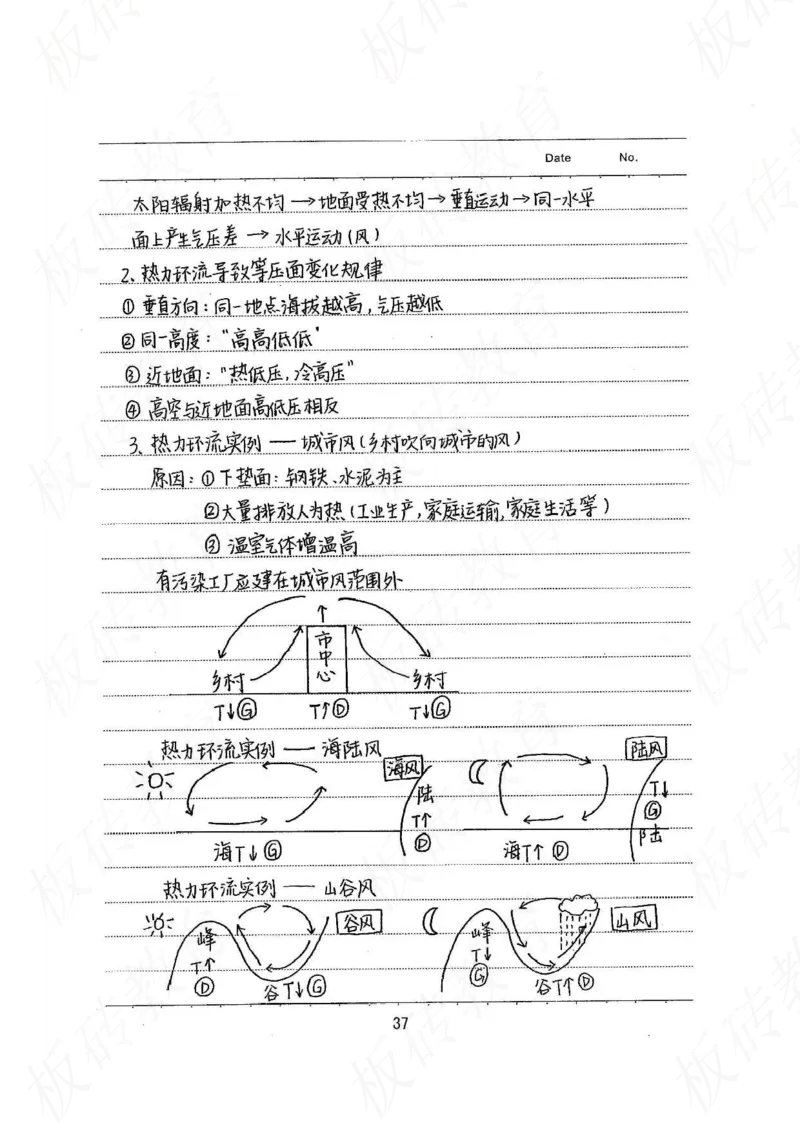 Date No.
太阳辐射加热不均→地面受热不均→垂直运动→同一水平
面上产生气压差→水平运动(风)
2、热力环流导致等压面变化规律
①垂直方向:同一地点海拔越高,气压越低
②同一高度:"高高低低"
③近地面:"热低压,冷高压"
④高空与近地面高低压相反
3、热力环流实例——城市风(乡村吹向城市的风)
原因:①下垫面:钢铁、水泥为主
②大量排放人为热(工业生产,家庭运输,家庭生活等)
③温室气体增温高
有污染工厂应建在城市风范围外
市中心
乡村 乡村
T↓Ⓖ T↑Ⓓ T↓Ⓖ
热力环流实例——海陆风
海风 陆风
陆 T↑ Ⓓ
T↓ Ⓖ 陆
海T↓Ⓖ 海T↑Ⓓ
热力环流实例——山谷风
谷风 山风
峰 T↑ Ⓓ
峰 T↓ Ⓖ
谷T↓Ⓖ 谷T↑Ⓓ
37
板砖教育